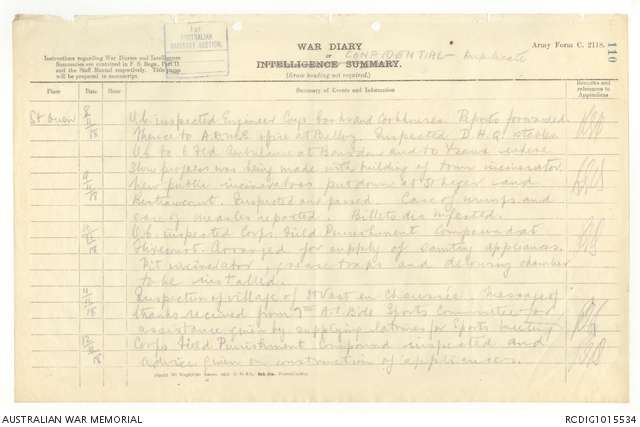 1ST
AUSTRALIAN
SANITARY SECTION.
Instructions regarding War Diaries and Intelligence
Summaries are contained in F. S. Regs., Part II.
and the Staff Manual respectively. Title pages
will be prepared in manuscript.
WAR DIARY
or CONFIDENTIAL - Duplicate
INTELLIGENCE SUMMARY.
(Erase heading not required.)
Army Form C. 2118.
110
Place
Date
Hour
Summary of Events and Information
Remarks and references to Appendices
St Ouen 8/11/18 O.C. inspected Engineer Corps and Cookhouses. Reports forwarded
thence to A.D.M.S. office at Bellvy. Inspected D.H.Q. stables
O.C. to 6 Fld Ambulance at and to where
Slow progress was being made with building of town incinerator
9/11/18 New public incinerators put down at St Leger and
Berteaucourt. Inspected and passed. Case of mumps and
case of measles reported. Billets disinfected.
10/11/18 O.C. inspected Corps Field Punishment Compound at
Flixecourt. Arranged for supply of sanitary appliances.
Pit incinerator, grease traps and delousing chamber
to be installed.
11/11/18 Inspection of village of St Vast en Chaussee. Message of
thanks received from 7th A.I. Bde Sports Committee for
assistance given by supplying latrines for Sports meeting
12/11/18 Corps Field Punishment Compound inspected and
advice given on construction of appliances.
AUSTRALIAN WAR MEMORIAL
RCDIG1015534